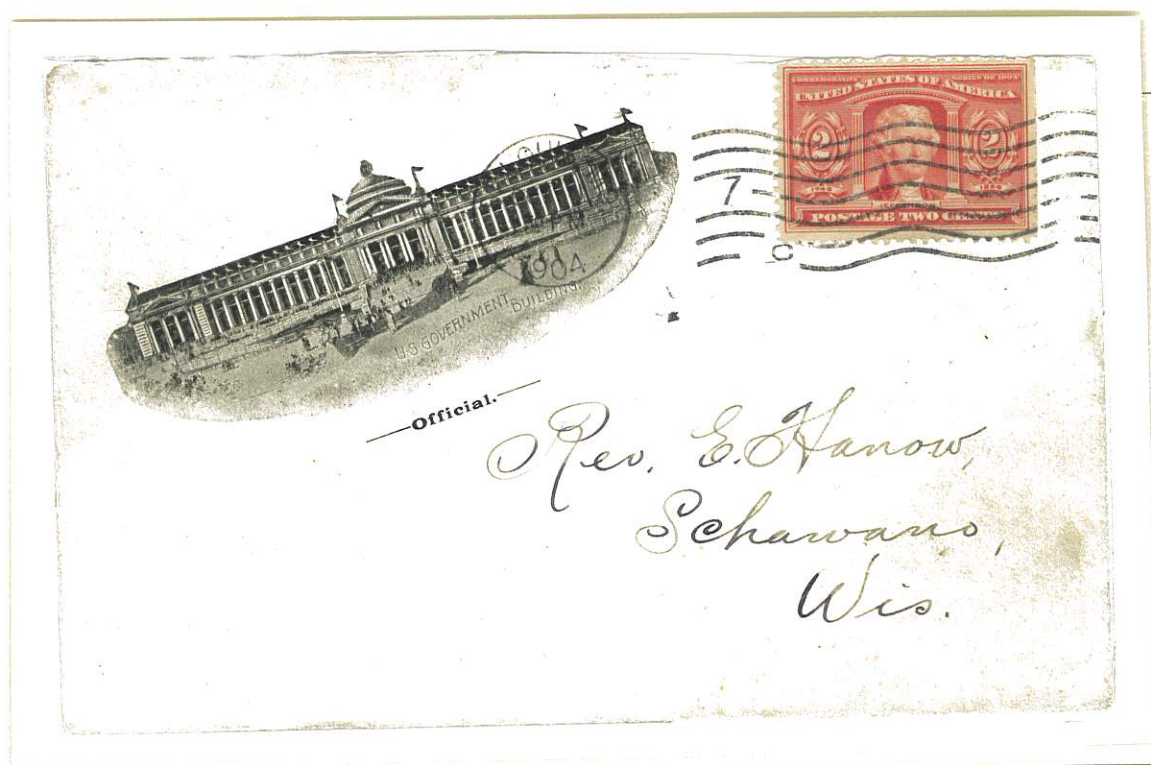 COMMEMORATIVE SERIES OF 1904
UNITED STATES OF AMERICA
2 2
1743 1826
JEFFERSON
POSTAGE TWO CENTS
7
C
1904
U.S. GOVERNMENT BUILDING.
Official.
Rev. E. Hanow,
Schawano,
Wis.